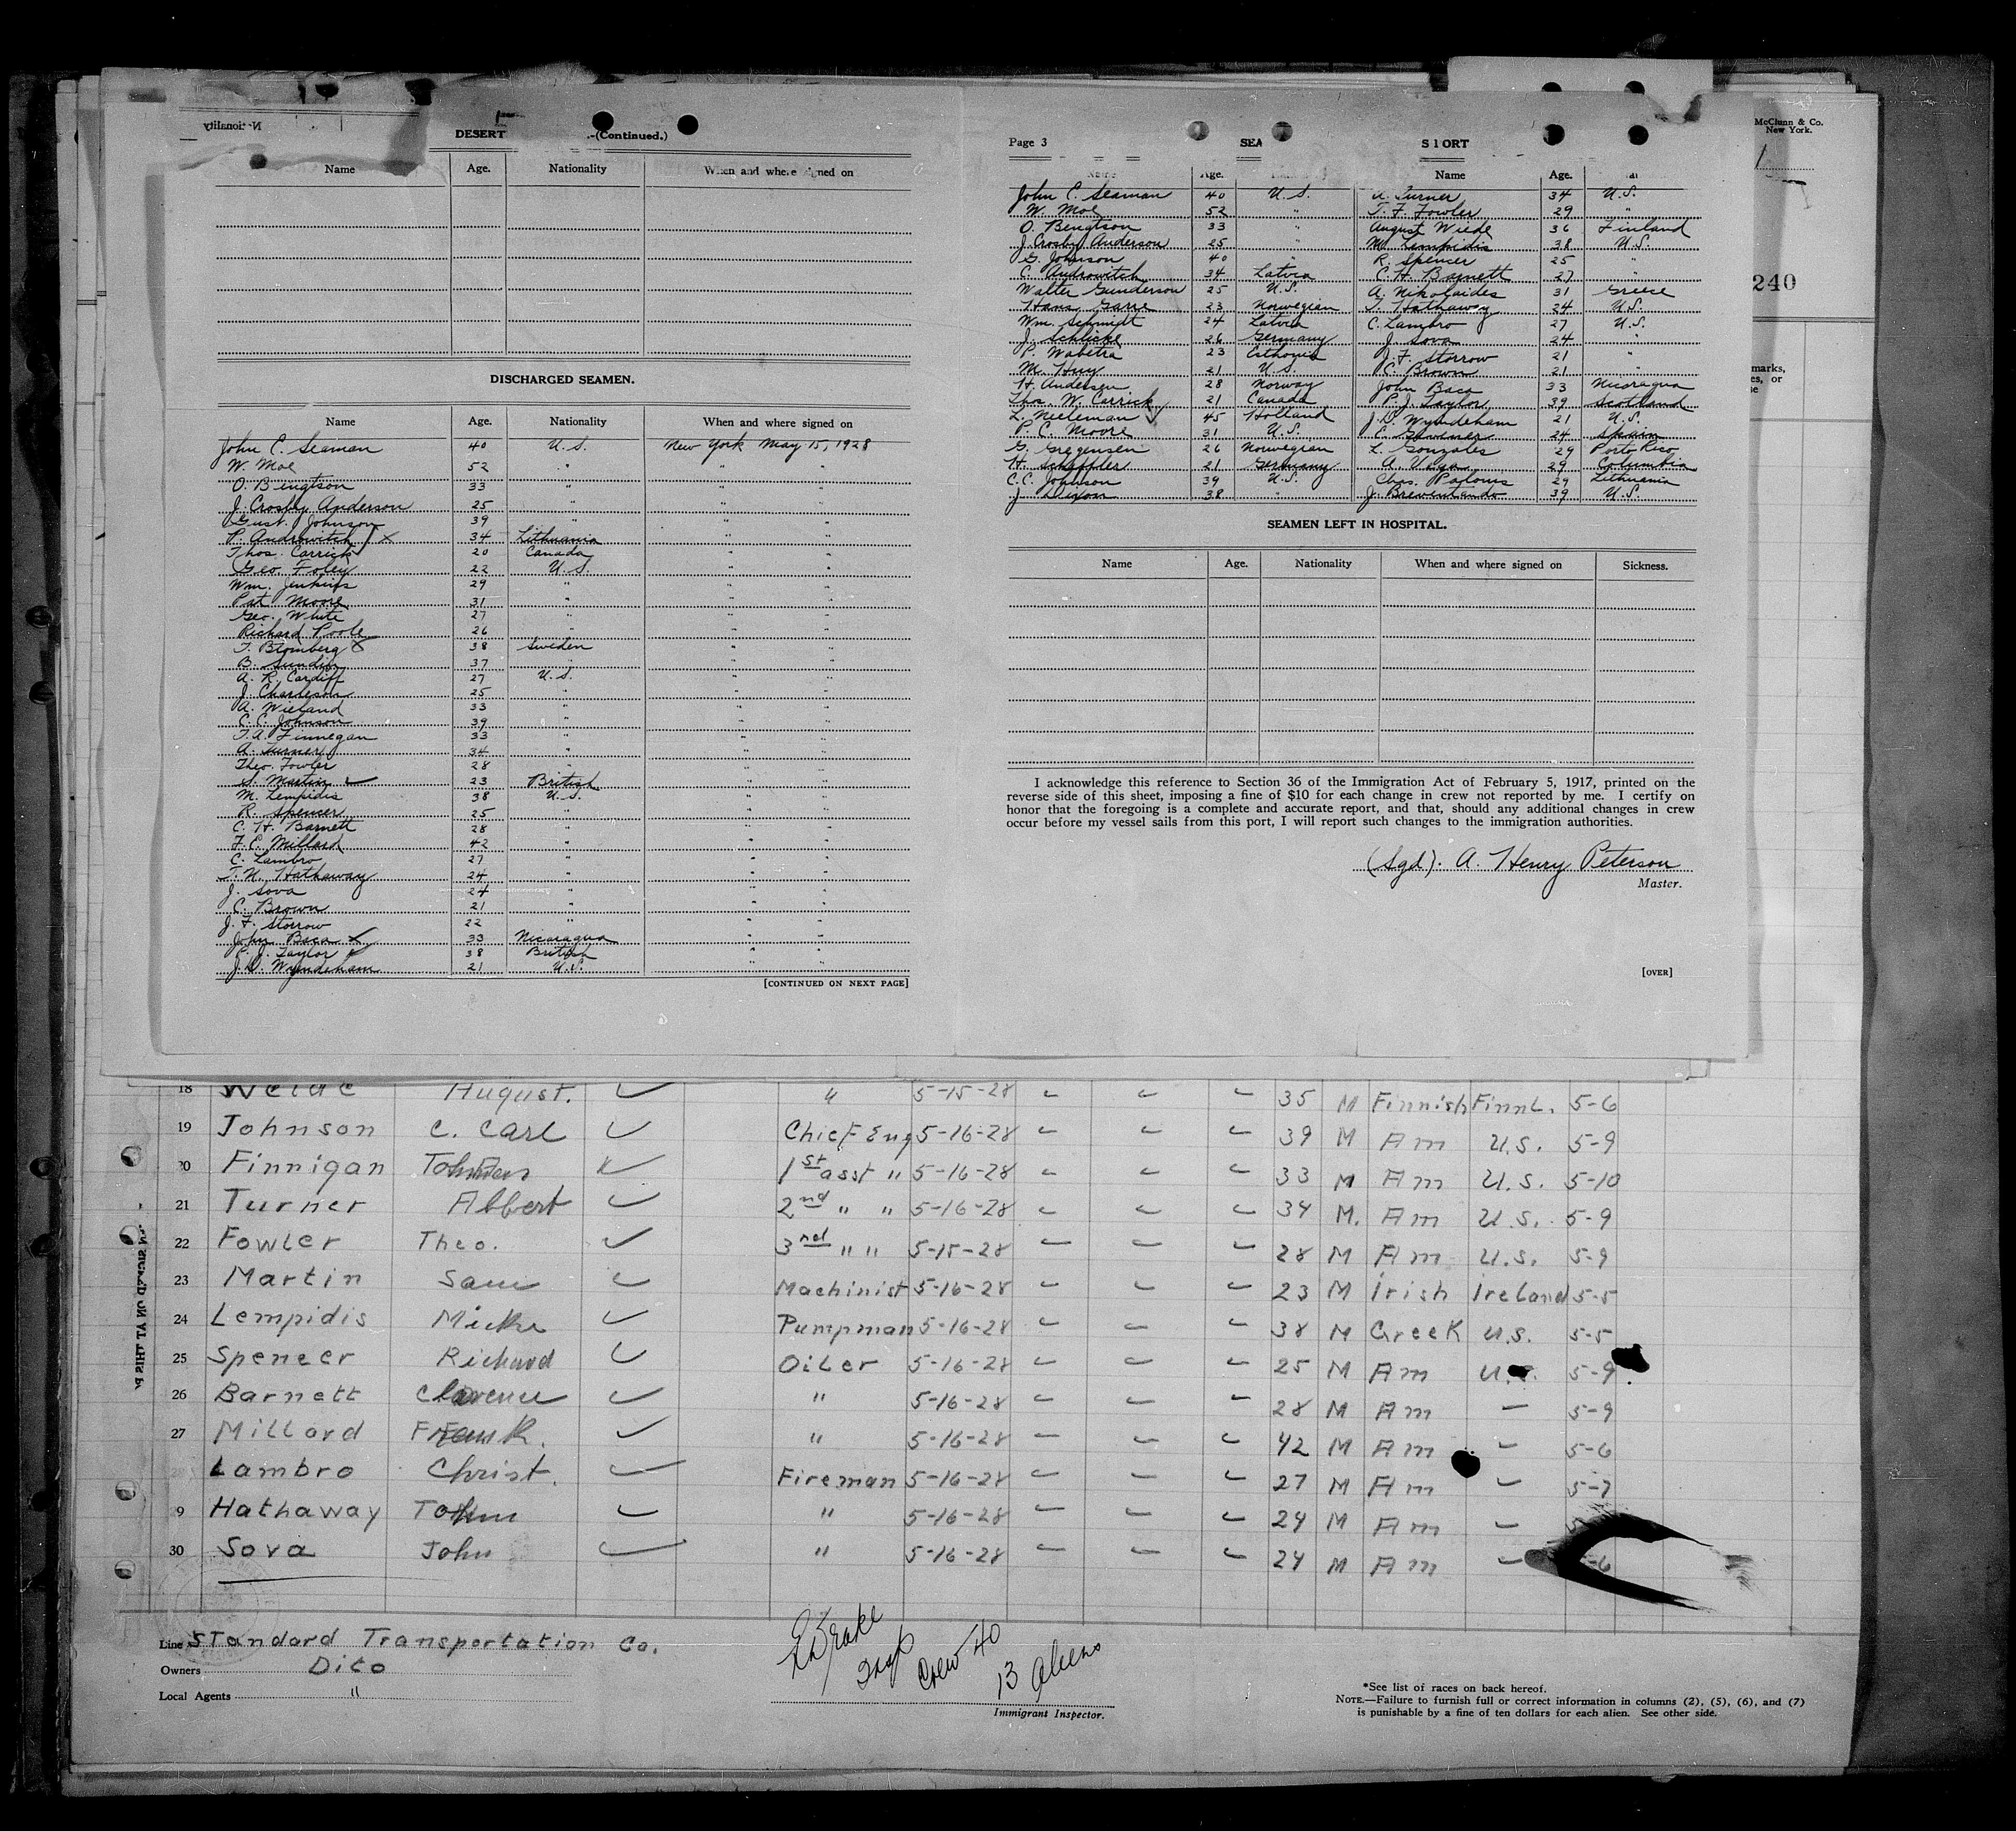 DESERT (Continued.)
Name Age. Nationality When and where signed on
DISCHARGED SEAMEN.
Name Age. Nationality When and where signed on
John C. Seaman 40 U.S. New York May 15, 1928
W. Moe 52 " " "
O. Bengtson 33 " " "
J. Crosby Anderson 25 " " "
Gust. Johnson 39 " " "
P. Androwitch 34 Lithuania " "
Thos. Carrick 20 Canada " "
Geo. Foley 22 U.S. " "
Wm. Jenkins 29 " " "
Pat Moore 31 " " "
Geo. White 27 " " "
Richard Poole 26 " " "
T. Blomberg 38 Sweden " "
B. Sundin 37 " " "
A. R. Cardiff 27 U.S. " "
J. Charleson 25 " " "
A. Wieland 33 " " "
C. C. Johnson 39 " " "
T. A. Finnegan 33 " " "
A. Turner 34 " " "
Theo. Fowler 28 " " "
S. Martin 23 British " "
M. Lempidis 38 U.S. " "
R. Spencer 25 " " "
C. H. Barnett 28 " " "
F. C. Millard 42 " " "
C. Lambro 27 " " "
T. N. Hathaway 24 " " "
J. Sova 24 " " "
C. Brown 21 " " "
J. F. Storrow 22 " " "
John Baca 33 Nicaragua " "
P. J. Taylor 38 British " "
J. D. Wyndeham 21 U.S. " "
[CONTINUED ON NEXT PAGE]
Page 3
Name Age. Name Age.
John C. Seaman 40 U.S. A. Turner 34 U.S.
W. Moe 52 " T. F. Fowler 29 "
O. Bengtson 33 " August Wiede 36 Finland
J. Crosby Anderson 25 " M. Lempidis 38 U.S.
G. Johnson 40 " R. Spencer 25 "
C. Androwitch 34 Latvia C. H. Barnett 27 "
Walter Gunderson 25 U.S. A. Nikolaides 31 Greece
Hans Garre 23 Norwegian T. Hathaway 24 U.S.
Wm. Schmidt 24 Latvia C. Lambro 27 U.S.
J. Schlicke 26 Germany J. Sova 24 "
P. Wabetra 23 Esthonia J. F. Storrow 21 "
M. Huy 21 U.S. C. Brown 21 "
H. Andersen 28 Norway John Baca 33 Nicaragua
Thos. W. Carrick 21 Canada P. J. Taylor 39 Scotland
L. Neeleman 45 Holland J. D. Wyndeham 21 U.S.
P. C. Moore 31 U.S. 24 Spain
G. Gregensen 26 Norwegian L. Gonzales 29 Porto Rico
H. Scheffler 21 Germany A. Vega 29 Columbia
C. C. Johnson 39 U.S. Chas. Palonis 29 Lithuania
J. Dixon 38 " J. Breventando 39 U.S.
SEAMEN LEFT IN HOSPITAL.
Name Age. Nationality When and where signed on Sickness.
I acknowledge this reference to Section 36 of the Immigration Act of February 5, 1917, printed on the
reverse side of this sheet, imposing a fine of $10 for each change in crew not reported by me. I certify on
honor that the foregoing is a complete and accurate report, and that, should any additional changes in crew
occur before my vessel sails from this port, I will report such changes to the immigration authorities.
(Sgd). A. Henry Peterson
Master.
[OVER]
McClunn & Co.
New York.
240
18 Weide August. " 5-15-28 35 M Finnish Finnl. 5-6
19 Johnson C. Carl Chief Eng 5-16-28 39 M Am U.S. 5-9
20 Finnigan 1st asst " 5-16-28 33 M Am U.S. 5-10
21 Turner Albert 2nd " " 5-16-28 34 M. Am U.S. 5-9
22 Fowler Theo. 3rd " " 5-15-28 28 M Am U.S. 5-9
23 Martin Sam Machinist 5-16-28 23 M Irish Ireland 5-5
24 Lempidis Mike Pumpman 5-16-28 38 M Greek U.S. 5-5
25 Spencer Richard Oiler 5-16-28 25 M Am U.S. 5-9
26 Barnett Clarence " 5-16-28 28 M Am 5-9
27 Millard Frank. " 5-16-28 42 M Am 5-6
Lambro Christ. Fireman 5-16-28 27 M Am 5-7
9 Hathaway John " 5-16-28 24 M Am
30 Sova John " 5-16-28 24 M Am -6
Line Standard Transportation Co.
Owners Dito
Local Agents "
Drake
Insp
Crew 40
13 Aliens
Immigrant Inspector.
*See list of races on back hereof.
NOTE.—Failure to furnish full or correct information in columns (2), (5), (6), and (7)
is punishable by a fine of ten dollars for each alien. See other side.